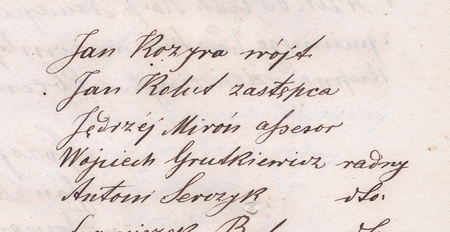 Jan Kozyra wójt
Jan Kolut zastępca
Jędrzéj Miroń assesor
Wojciech Grutkiewicz radny
Antoni Serczyk dto.